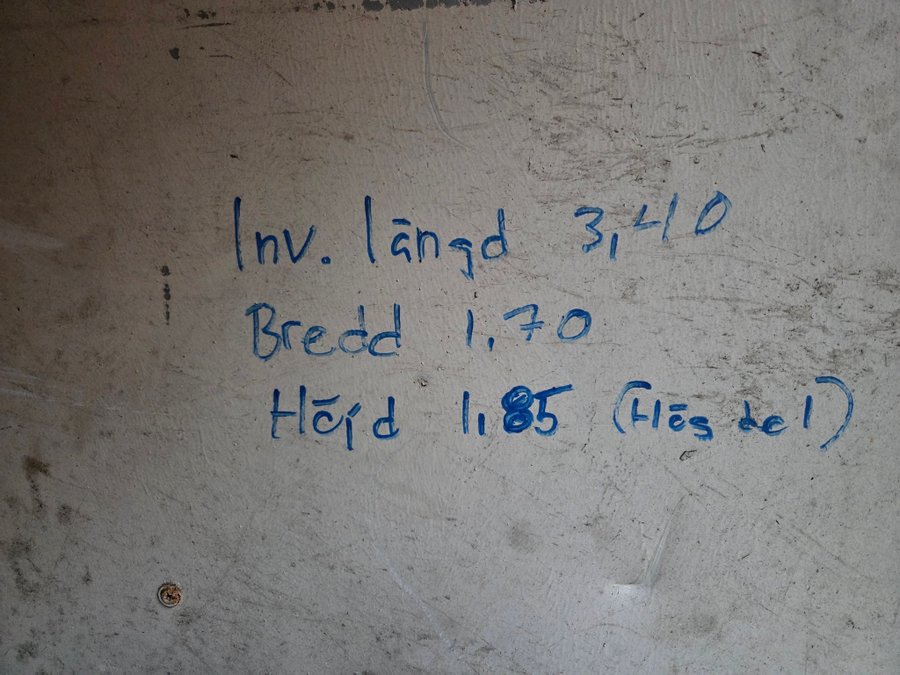 Inv. längd 3,40
Bredd 1,70
Höjd 1,85 (Hög del)